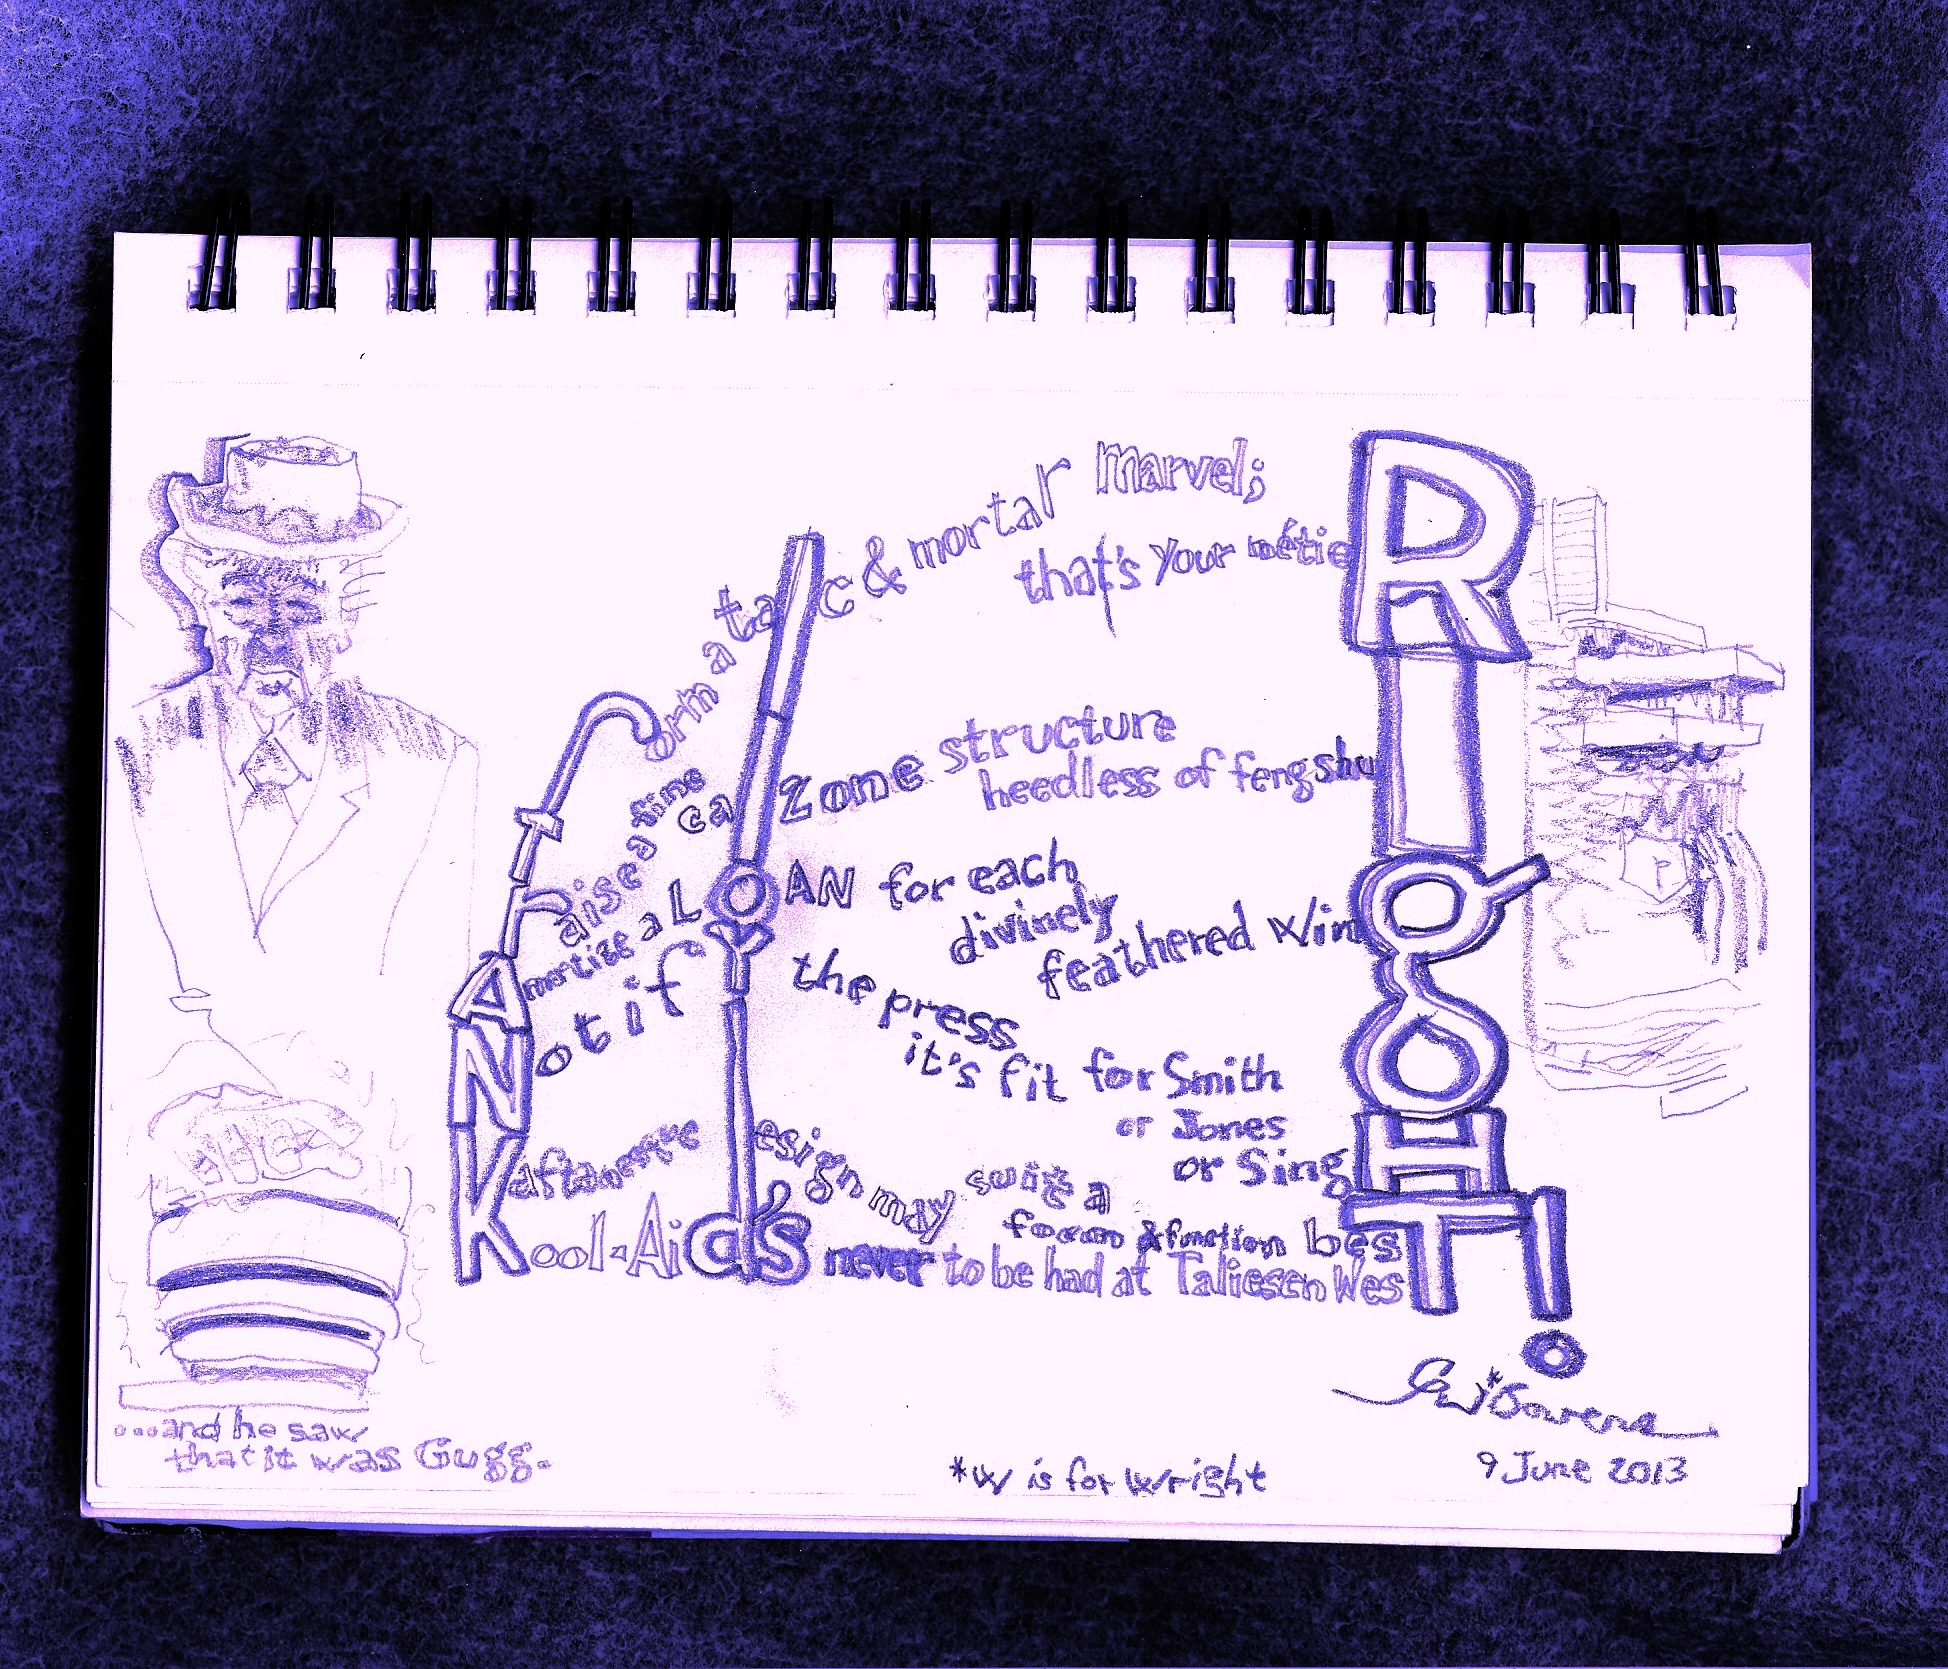 Form a talc & mortar marvel;
that's your métieR
Raise a fine calzone structure
heedless of fengshuI
Amortize a LOAN for each
divinely
feathered winG
Notify the press
it's fit for Smith
or Jones
or SingH
Kaftanesque Design may suit a
form & function besT
Kool-Aid's never to be had at Taliesen WesT!
...and he saw
that it was Gugg.
*W is for Wright
9 June 2013